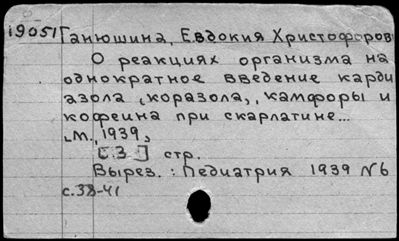 19051 Ганюшина, Евдокия Христофоров
О реакциях организма на
однократное введение карди
азола (коразола), камфоры и
кофеина при скарлатине...
М., 1939,
[С.3] стр.
Вырез.: Педиатрия 1939 №6
с.38-41